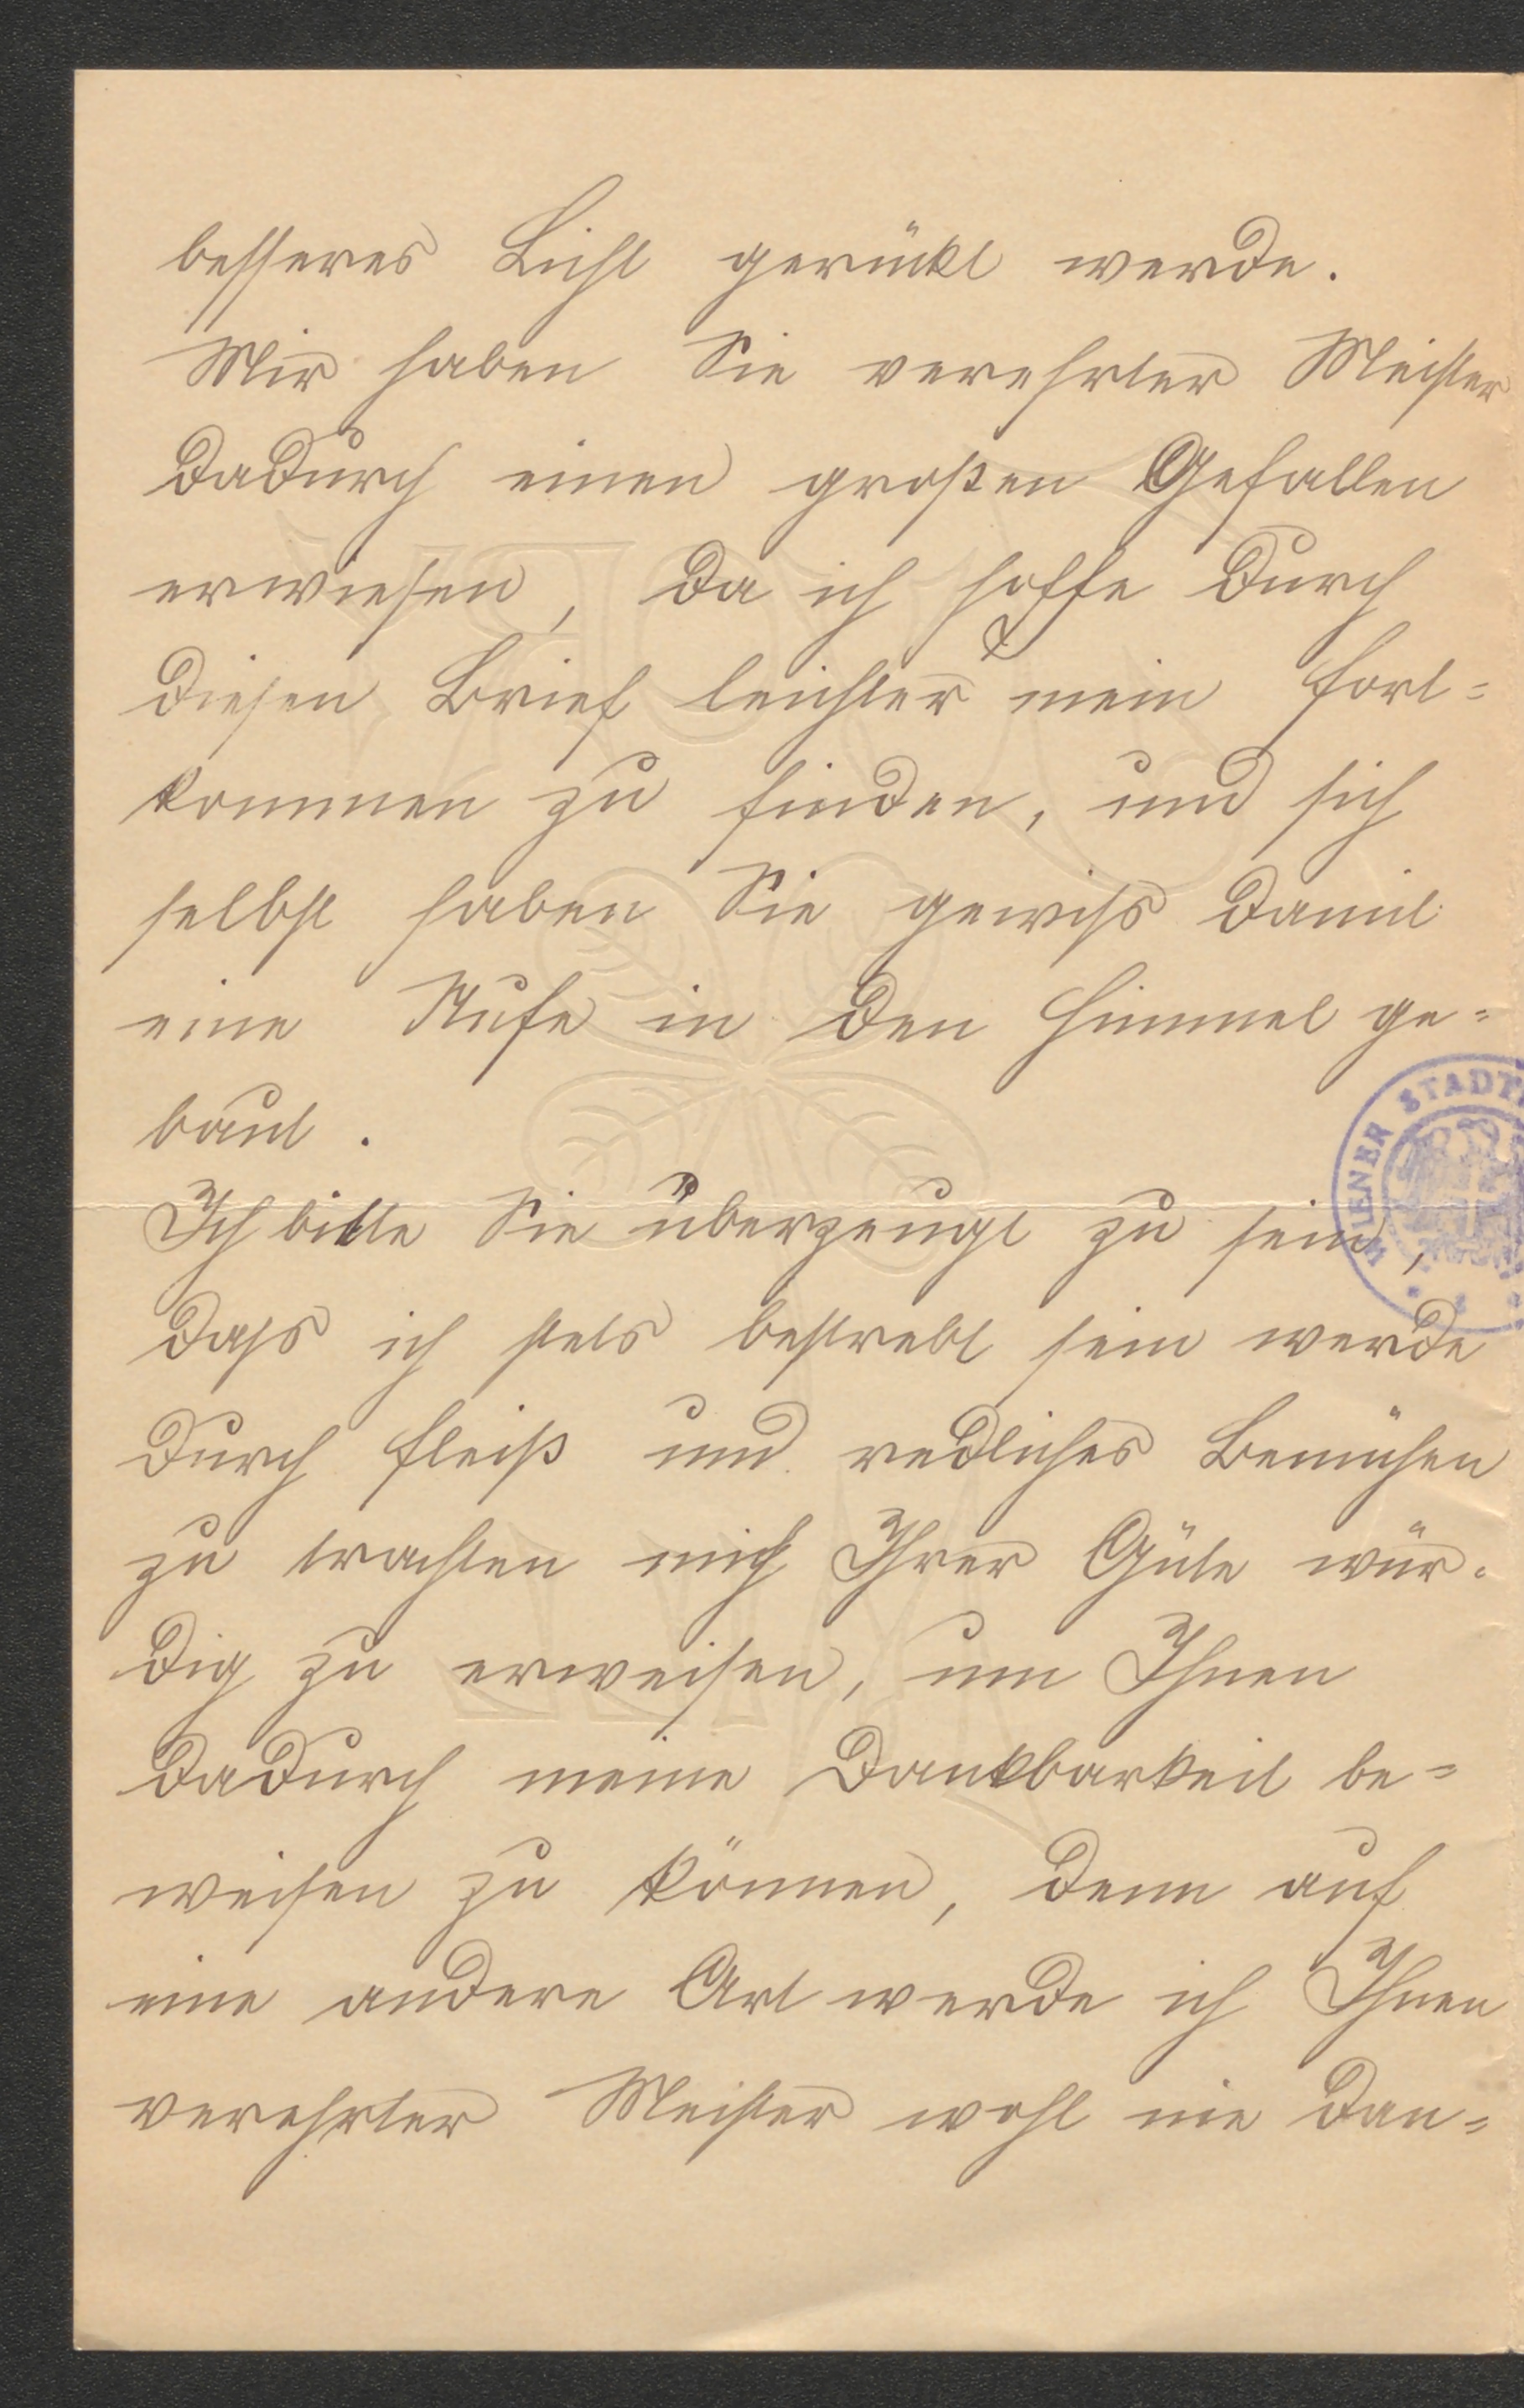 besseres Licht gerückt werde.
Mir haben Sie verehrter Meister
dadurch einen großen Gefallen
erwiesen, da ich hoffe durch
diesen Brief leichter mein Fort=
kommen zu finden, und sich
selbst haben Sie gewiss damit
eine Stufe in den Himmel ge=
baut.
Ich bitte Sie überzeugt zu sein,
dass ich stets bestrebt sein werde
durch Fleiß und redliches Bemühen
zu trachten mich Ihrer Güte wür=
dig zu erweisen, um Ihnen
dadurch meine Dankbarkeit be=
weisen zu können, denn auf
eine andere Art werde ich Ihnen
verehrter Meister wohl nie dan=
WIENER STADT